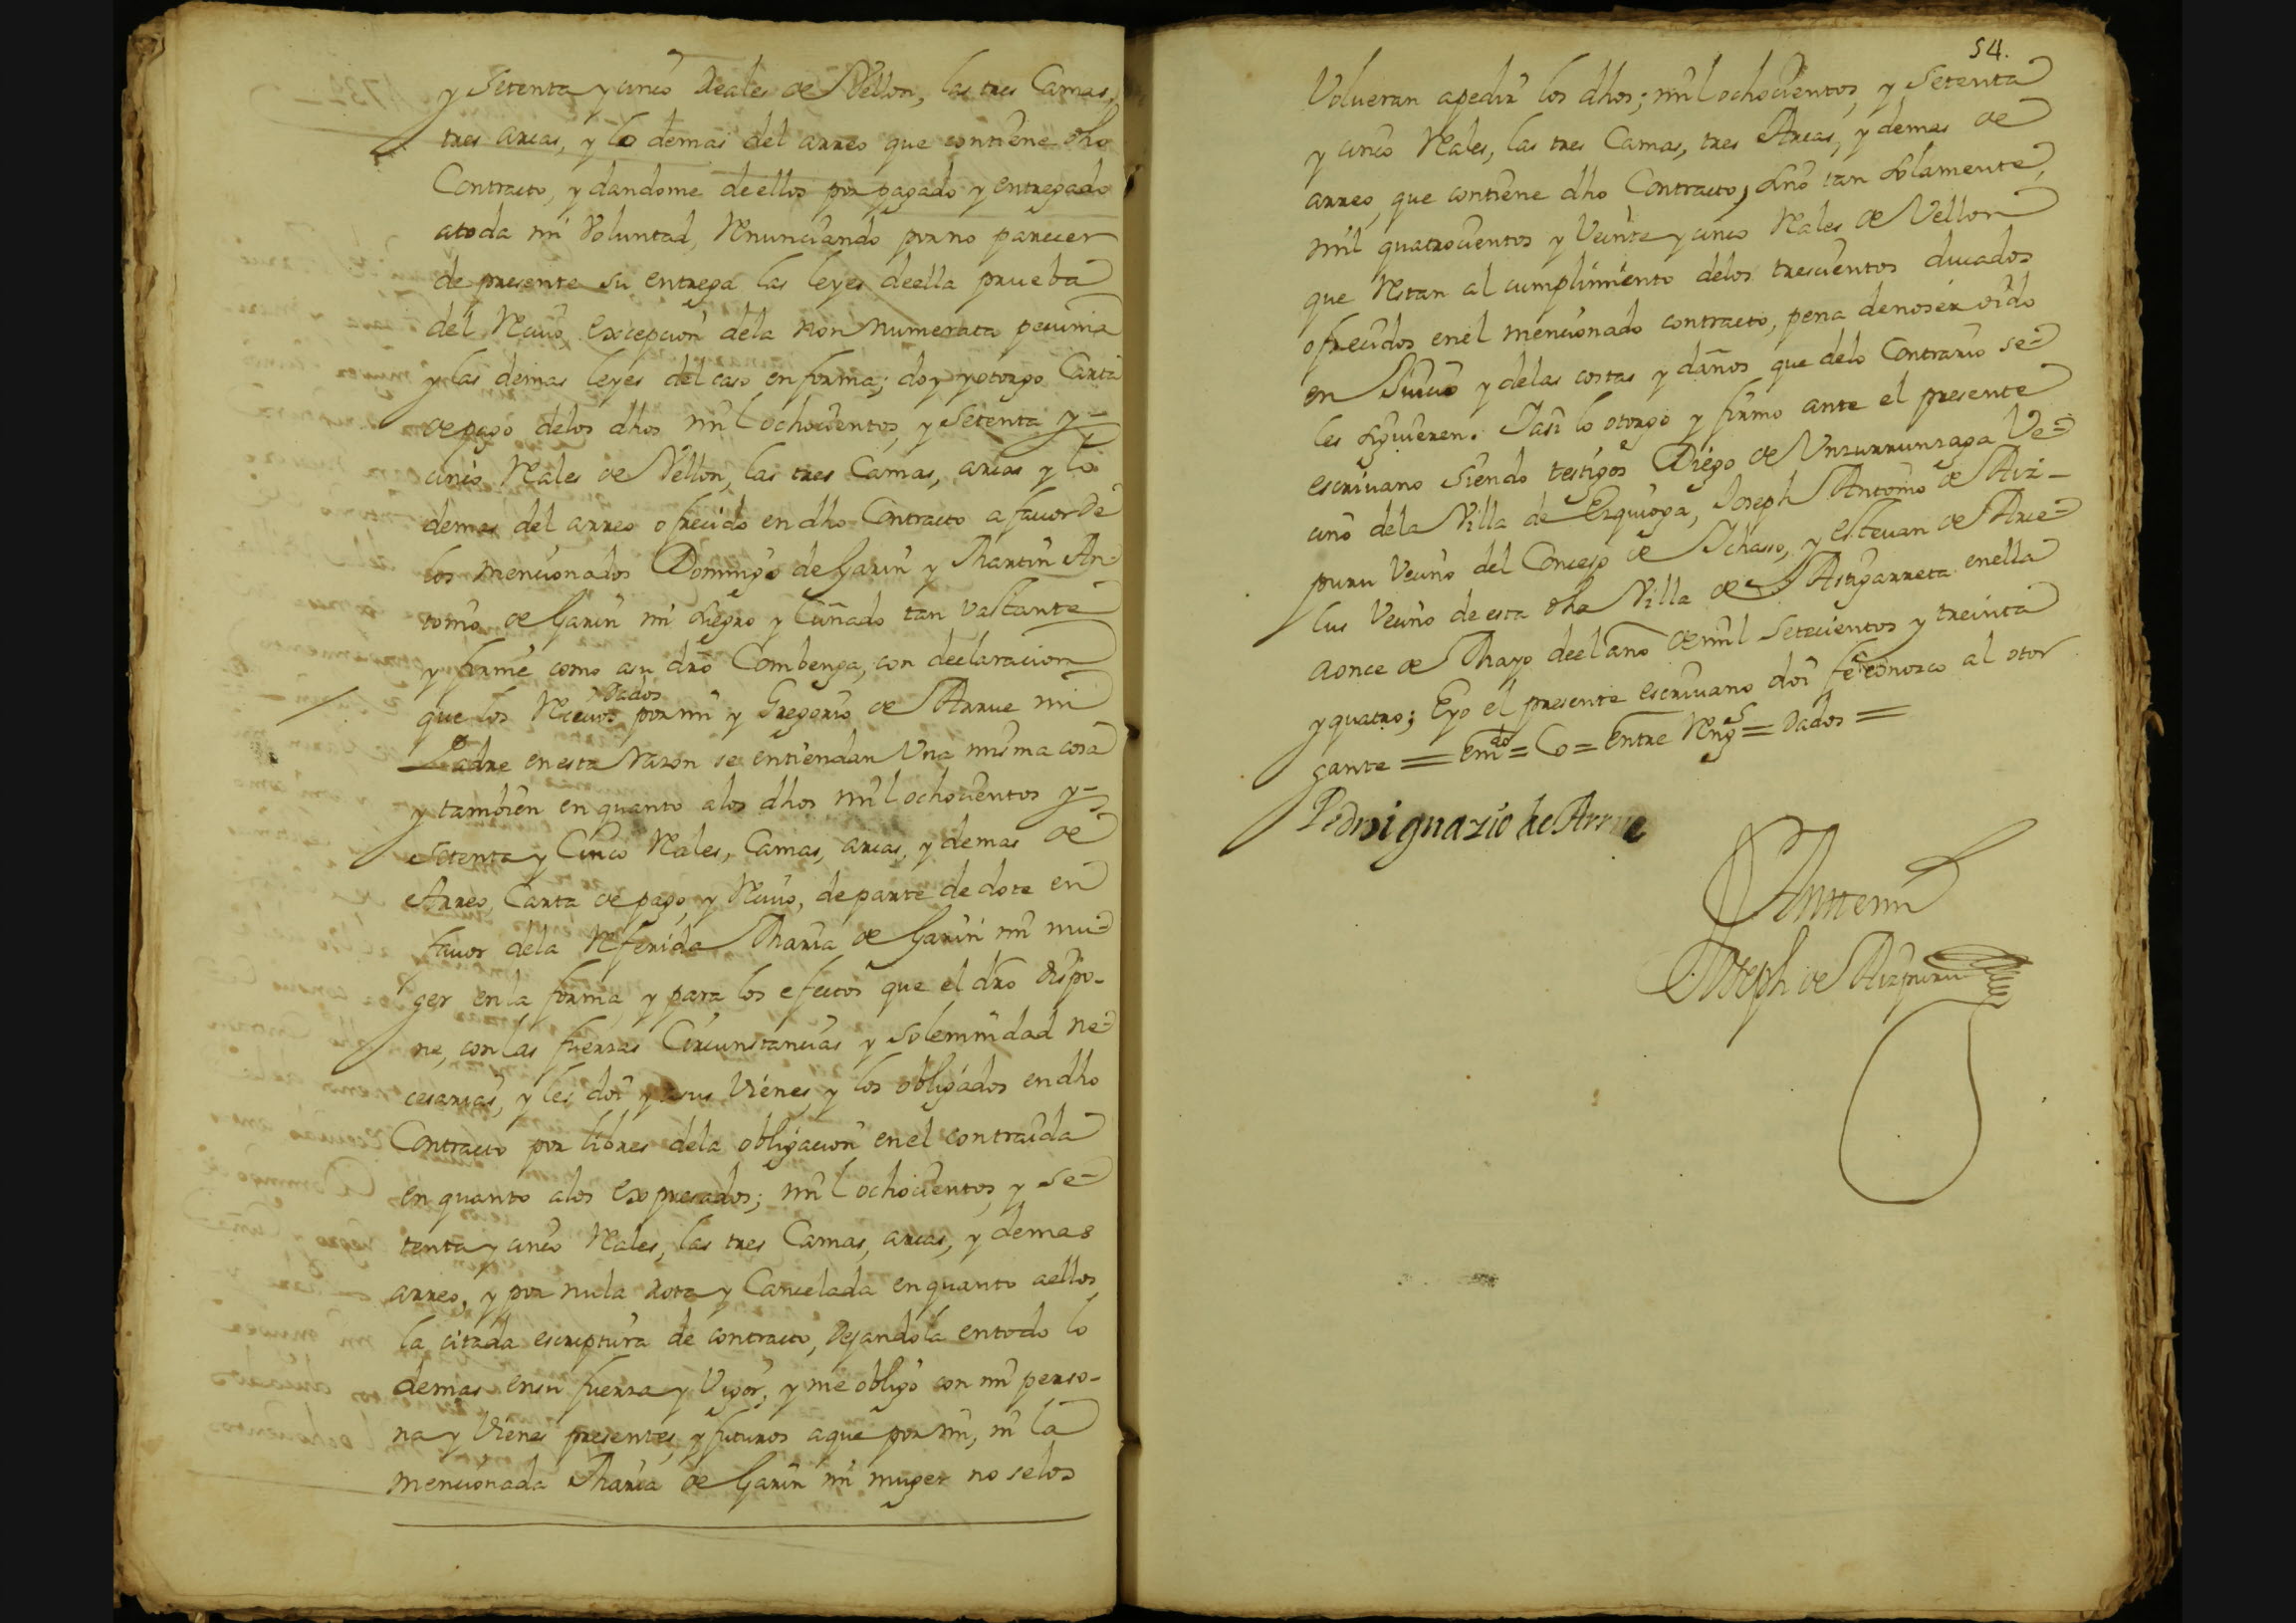 y setenta y cinco Reales de Vellon, las tres Camas,
tres arcas, y lo demas del arreo que contiene dho
Contracto, y dandome de ellos por pagado y entregado
atoda mi Voluntad, Renunciando por no parecer
de presente su entrega las leyes de ella prueba
del Recivo, excepcion dela non numerata pecunia
y las demas leyes del caso en forma; doy y otorgo Carta
de pago delos dhos mil ochocientos, y setenta y
cinco Reales de Vellon, las tres Camas, arcas y lo
demas del arreo ofrecido en dho Contracto a favor de
los mencionados Domingo de Garin y Martin An
tonio de Garin mi suegro y Cuñado tan vastante
y firme como asu dro Combenga, con declaracion
que los Recivos Dados por mi y Gregorio de Arrue mi
Padre en esta razon se entiendan Una misma cosa
y tambien en quanto alos dhos mil ochocientos y
setenta y Cinco Reales, Camas, arcas, y demas de
Arreo, Carta de pago, y Recivo, de parte de dote en
favor dela Referida Maria de Garin mi mu
ger en la forma, y para los efectos que el dro dispo-
ne, con las fuerzas Circunstancias y solemnidad ne
cesarias, y les doi y asus Vienes, y los obligados en dho
Contracto por libres dela obligacion en el contraida
en quanto alos expresados; mil ochocientos, y se
tenta y cinco Reales, las tres Camas, arcas, y demas
arreo, y por nula rota y Cancelada en quanto aellos
la citada escriptura de contracto, Dejandola entodo lo
demas ensu fuerza y Vigor, y me obligo con mi perso-
na y Vienes presentes, y futuros aque por mi, ni la
mencionada Maria de Garin mi muger no selos
54.
Volueran apedir los dhos; mil ochocientos, y Setenta
y cinco Reales, las tres Camas, tres Arcas, y demas de
arreo, que contiene dho Contracto, sino tan solamente,
mil quatrocientos y Veinte y cinco Reales de Vellon
que Restan al cumplimiento delos trescientos ducados
ofrecidos enel mencionado contracto, pena denoser oido
en Juicio y delas costas y daños que delo Contrario se
les siguieren. Iasi lo otorgo y firmo ante el presente
escrivano siendo testigos Diego de Unzurrunzaga Ve
cino dela Villa de Ezquioga, Joseph Antonio de Aiz-
puru Vecino del Concejo de Ichaso, y estevan de Arce
lus Vecino de esta dha Villa de Astigarreta enella
aonce de Mayo deel año de mil setecientos y treinta
y quatro; Eyo el presente escrivano doi fe conozco al otor
gante = emdo = Co = Entre Rengs = Dados =
Pedro ignazio de Arrue
Antemi
Joseph de Aizpuru